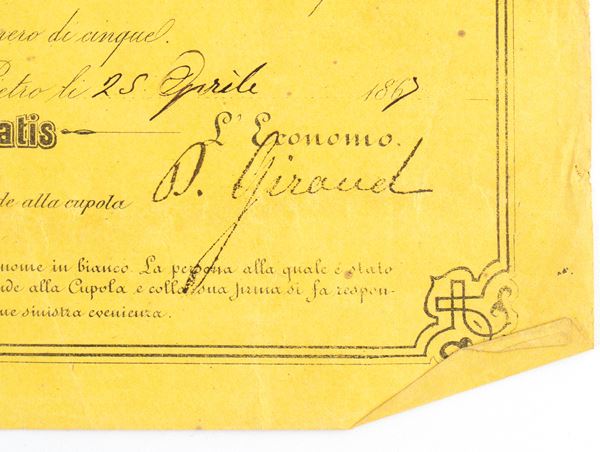 nero di cinque.
Pietro li 25 Aprile 1867
atis
L'Economo.
de alla cupola D. Giraud
nome in bianco. La persona alla quale è stato
nde alla Cupola, e colla sua firma si fa respon-
ue sinistra evenienza.